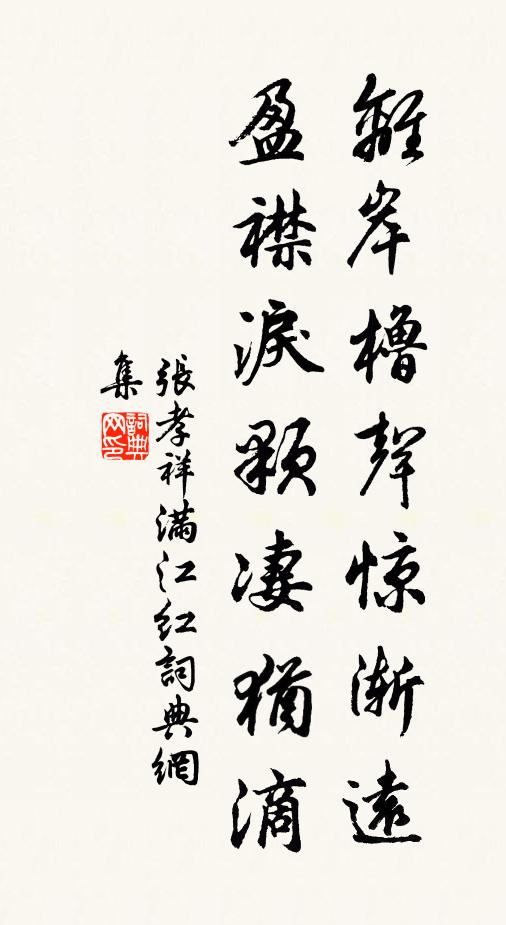 離岸櫓聲惊漸遠
盈襟淚顆凄猶滴
張孝祥滿江红詞典網
集
詞典网印